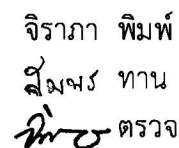 จิราภา พิมพ์
สุมพร ทาน
ตรวจ